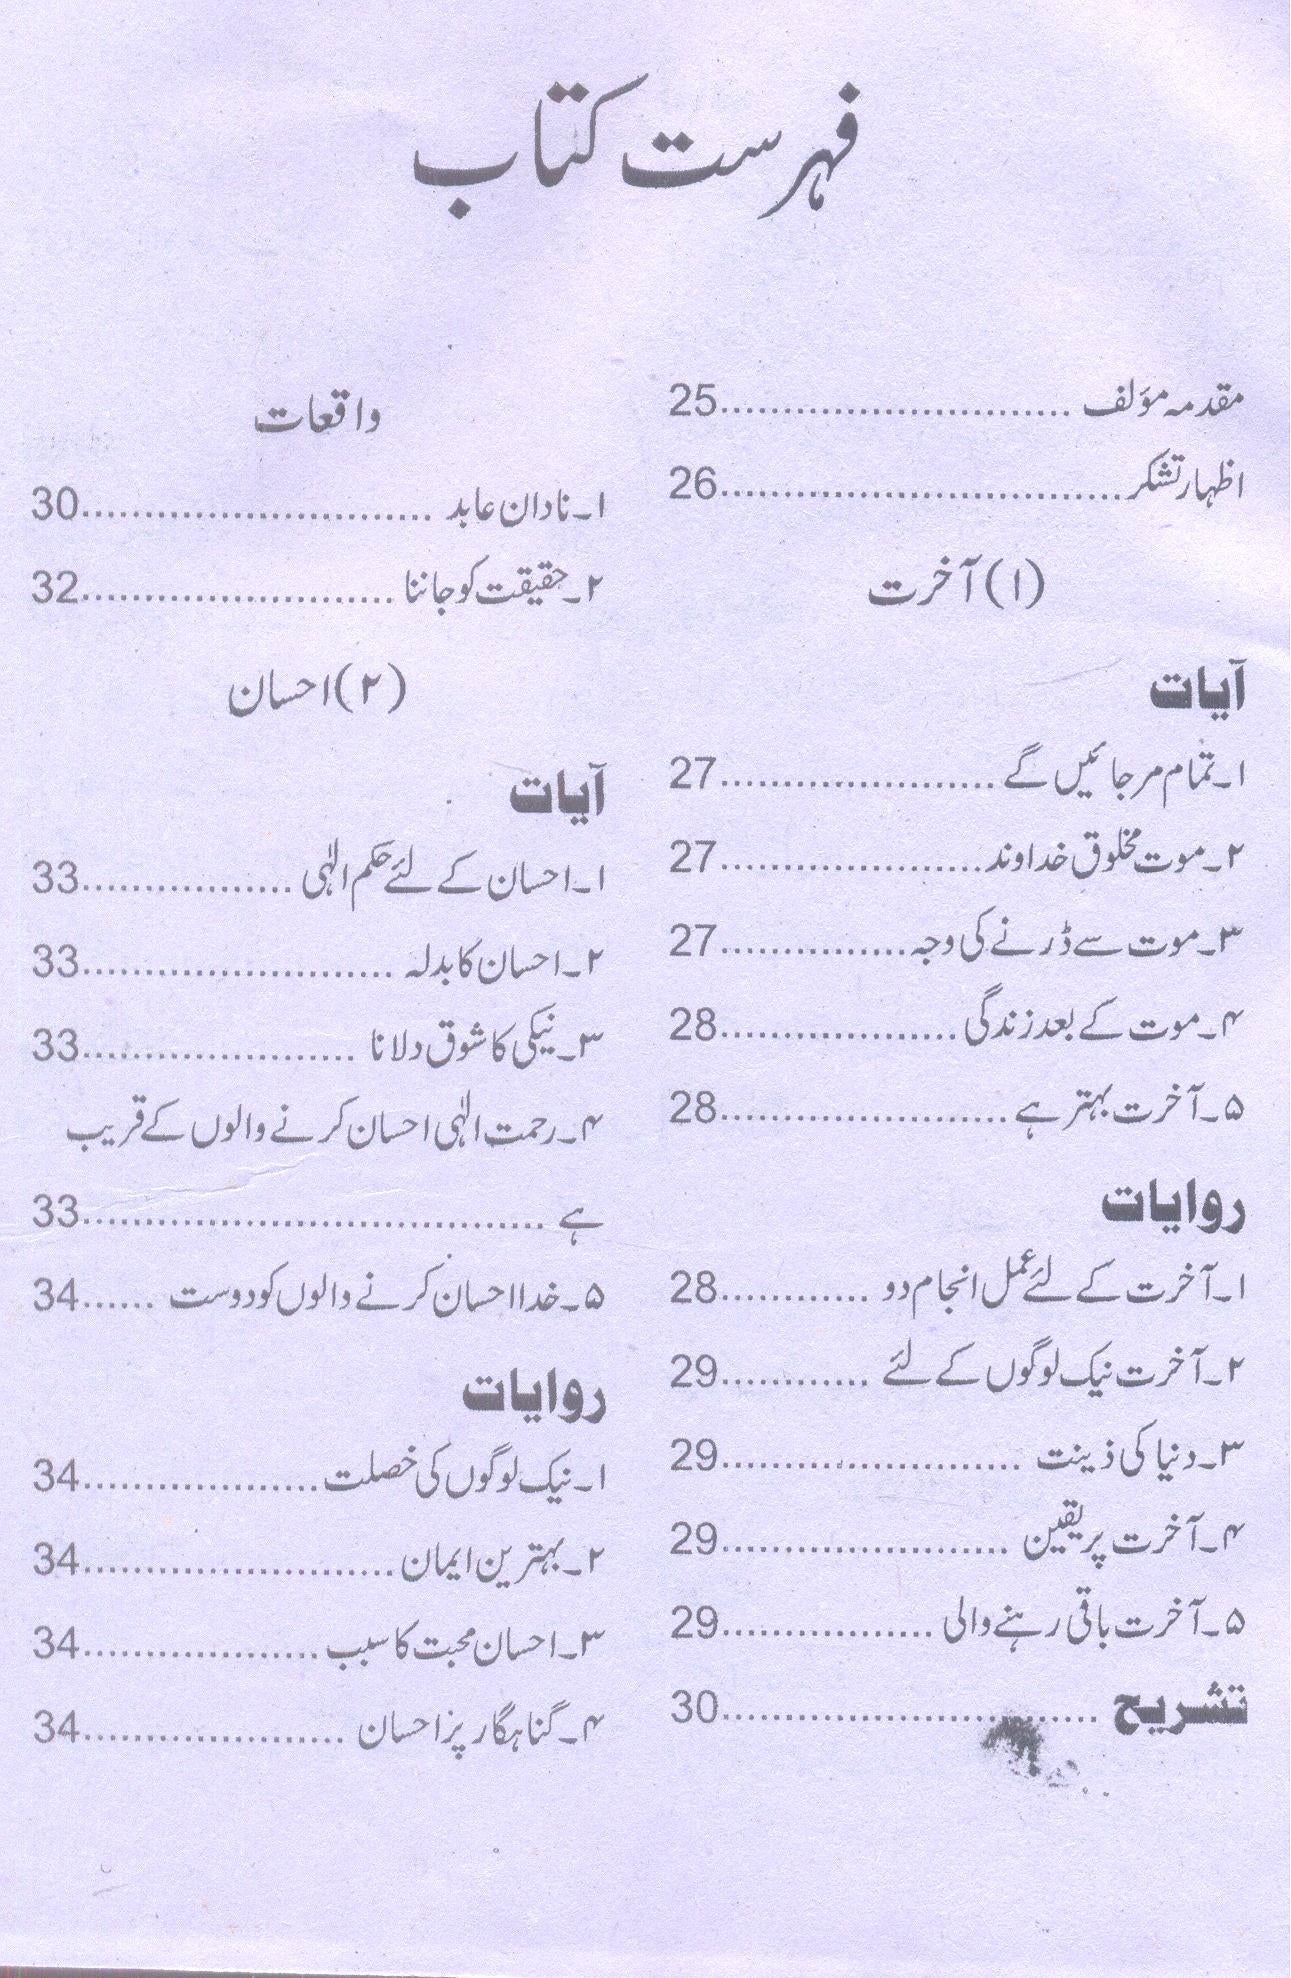 فہرست کتاب
مقدمہ مؤلف ............................25
اظہار تشکر................................26
(۱) آخرت
آیات
۱۔ تمام مر جائیں گے ......................27
۲۔ موت مخلوق خداوند.....................27
۳۔ موت سے ڈرنے کی وجہ...............27
۴۔ موت کے بعد زندگی...................28
۵۔ آخرت بہتر ہے .......................28
روایات
۱۔ آخرت کے لئے عمل انجام دو ............28
۲۔ آخرت نیک لوگوں کے لئے ............29
۳۔ دنیا کی ذینت ........................29
۴۔ آخرت پر یقین .......................29
۵۔ آخرت باقی رہنے والی .................29
تشریح ..............................30
واقعات
۱۔ نادان عابد ............................30
۲۔ حقیقت کو جاننا .........................32
(۲) احسان
آیات
۱۔ احسان کے لئے حکم الٰہی .................33
۲۔ احسان کا بدلہ .........................33
۳۔ نیکی کا شوق دلانا ......................33
۴۔ رحمت الٰہی احسان کرنے والوں کے قریب
ہے .....................................33
۵۔ خدا احسان کرنے والوں کو دوست ......34
روایات
۱۔ نیک لوگوں کی خصلت...................34
۲۔ بہترین ایمان.........................34
۳۔ احسان محبت کا سبب ...................34
۴۔ گناہگار پر احسان .....................34